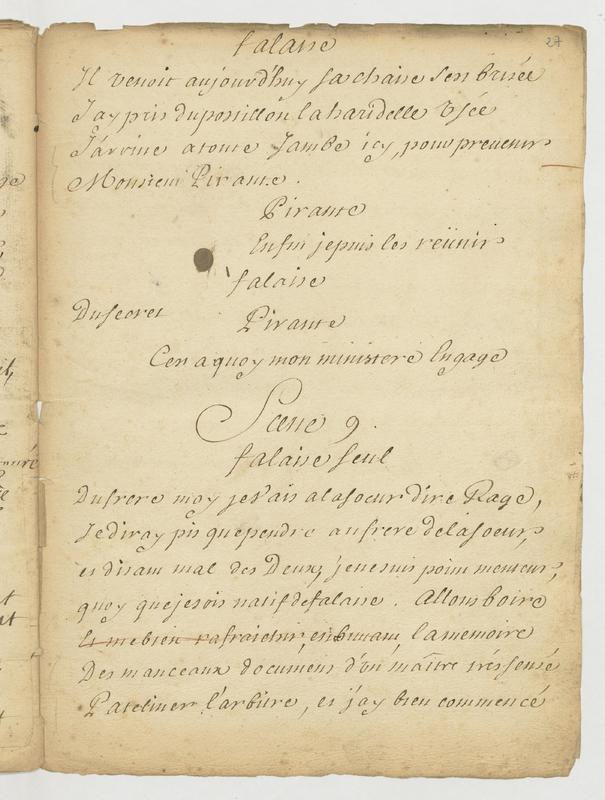 27
falaise
Il venoit aujourd'huy sa chaise sest brisée
J'ay pris du postillon la haridelle usée
J'arrive a toute Jambe icy, pour prevenir
Monsieur Pirante.
Pirante
Enfin je puis les reünir
falaise
Du secret
Pirante
C'en a quoy mon ministere Engage
Scene 9.
falaise seul
Du frere moy je vais a la soeur dire Rage,
Je diray pis que pendre au frere de la soeur,
et disant mal des Deux, je ne suis point menteur,
quoy que je sois natif de falaise. Allons boire
et me bien rafraichir, en buvant, la memoire
Des manceaux documens d'un maître très sensé
Pateliner l'arbitre, et j'ay bien commencé